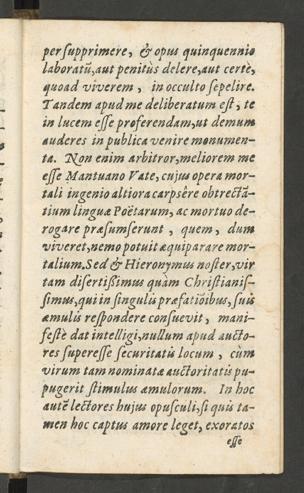 per supprimere, & opus quinquennio
laboratū, aut penitùs delere, aut certè,
quoad viverem, in occulto sepelire.
Tandem apud me deliberatum est, te
in lucem esse proferendam, ut demum
auderes in publica venire monumen-
ta. Non enim arbitror, meliorem me
esse Mantuano Vate, cujus opera mor-
tali ingenio altiora carpsêre obtrectā-
tium linguæ Poëtarum, ac mortuo de-
rogare præsumserunt, quem, dum
viveret, nemo potuit æquiparare mor-
talium. Sed & Hieronymus noster, vir
tam disertissimus quàm Christianis-
simus, qui in singulis præfatiōibus, suis
æmulis respondere consuevit, mani-
festè dat intelligi, nullum apud aucto-
res superesse securitatis locum, cùm
virum tam nominatæ auctoritatis pu-
pugerit stimulus æmulorum. In hoc
autē lectores hujus opusculi, si quis ta-
men hoc captus amore leget, exoratos
esse